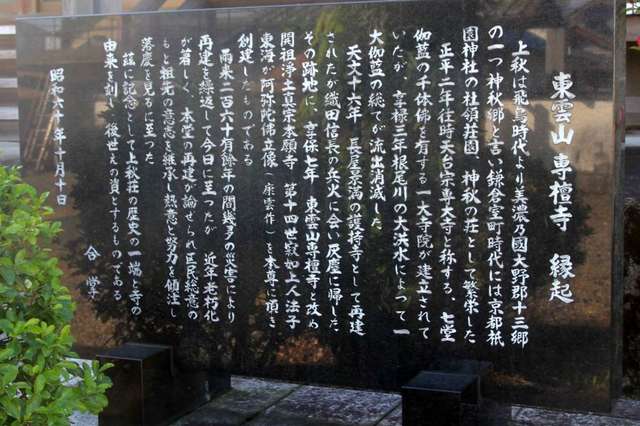 東雲山 専檀寺 縁起
上秋は飛鳥時代より美濃乃國大野郡十三郷
の一つ神秋郷と言い鎌倉室町時代には京都祇
園神社の社領荘園 神秋の荘として繁栄した
正平二年往時天台宗尊大寺と称する、七堂
伽藍の千体佛を有する一大寺院が建立されて
いたが 享禄三年根尾川の大洪水によつて一
大伽藍の総てが流出消滅した
天文十六年 長屋景満の護持寺として再建
されたが織田信長の兵火に会い灰燼に帰した
その跡地に、享保七年 東雲山専檀寺と改め
開祖浄土真宗本願寺 第十四世寂如上人法子
東海が阿弥陀佛立像(康雲作)を本尊に頂き
創建したものである
爾来二百六十有餘年の間幾多の災害により
再建を繰返して今日に至つたが 近年老朽化
が著しく、本堂の再建が論ぜられ区民総意の
もと祖先の意志を継承し熱意と努力を傾注し
落慶を見るに至つた
茲に記念として上秋荘の歴史の一端と寺の
由来を刻し 後世えの資とするものである
昭和六十年十月十日
合掌